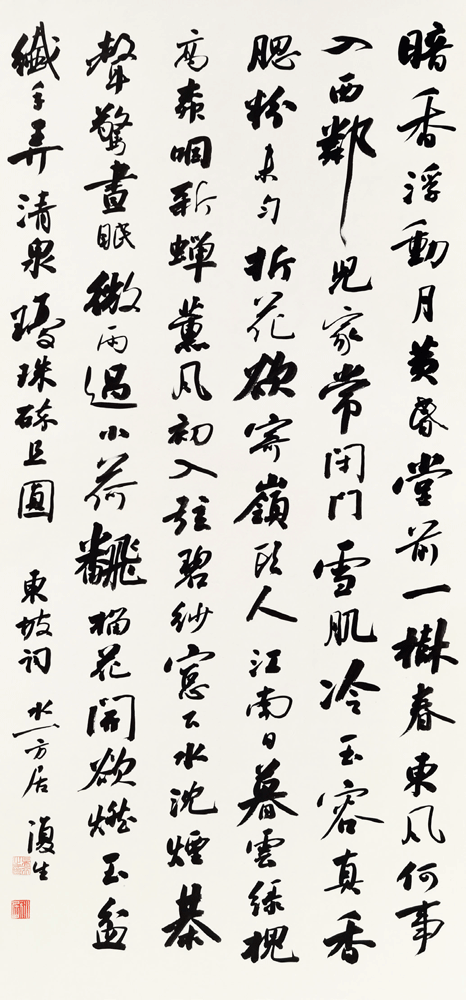 暗香浮動月黄昏堂前一樹春東風何事
入西鄰兒家常閉門雪肌冷玉容真香
腮粉未勻折花欲寄嶺頭人江南日暮雲綠槐
高柳咽新蟬薰風初入弦碧紗窗下水沈煙棊
聲驚晝眠微雨過小荷翻榴花開欲燃玉盆
纖手弄清泉瓊珠碎且圓 東坡詞 水一方居 生